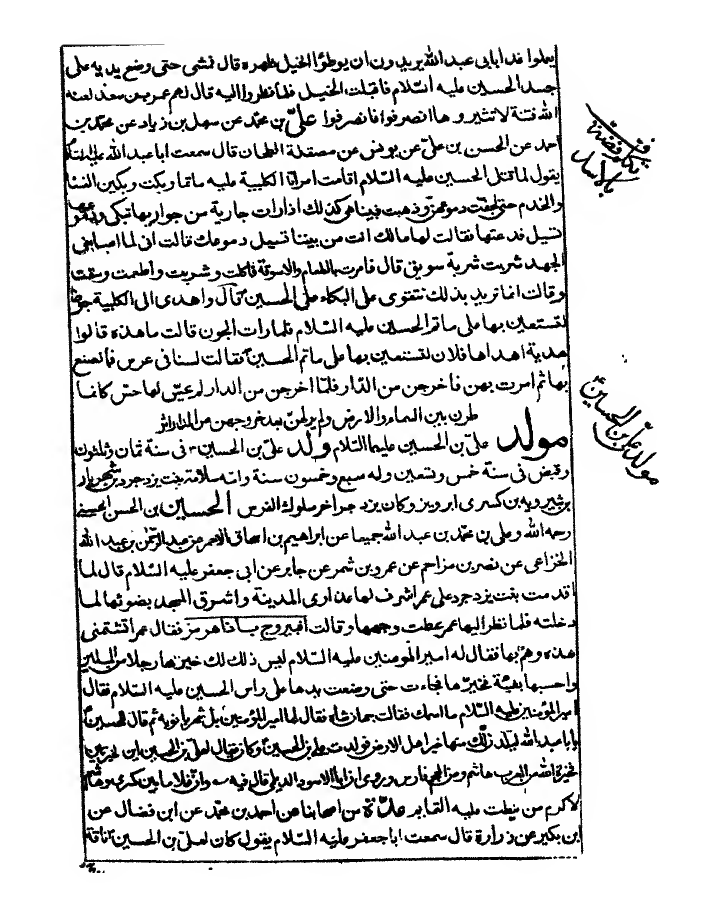 يعملوا غدا بابي عبد الله يريدون ان يوطؤا الخيل ظهره قال فمشى حتى وضع يديه على
جسد الحسين عليه السّلام فاقبلت الخيل فلما نظروا اليه قال لهم عمر بن سعد لعنه
الله فتنة لا تثيروها انصرفوا فانصرفوا علىّ بن محمّد عن سهل بن زياد عن محمّد بن
احمد عن الحسن بن علىّ عن يونس عن مصقلة الطحان قال سمعت ابا عبد الله عليه
يقول لما قتل الحسين عليه السّلام اقامت امرأته الكلبية عليه ماتما وبكت وبكين النساء
والخدم حتى جفّت دموعهنّ وذهبت فبينا هى كذلك اذا رات جارية من جواريها تبكى ودموعها
تسيل فدعتها فقالت لها مالك انت من بيننا تسيل دموعك قالت انى لما اصابنى
الجهد شربت شربة سويق قال فامرت بالطعام والاسوقة فاكلت وشربت واطعمت وسقت
وقالت انما نريد بذلك نتقوى على البكاء على الحسين قال واهدى الى الكلبية جونا
لتستعين بها على ماتم الحسين عليه السّلام فلما رات الجون قالت ما هذه قالوا
هدية اهداها فلان لتستعين بها على ماتم الحسين فقالت لسنا فى عرس فما نصنع
بها ثم امرت بهن فاخرجن من الدّار فلمّا اخرجن من الدار لم يحسّ لها حسّ كانما
طرن بين السماء والارض ولم ير لهنّ بعد خروجهن من الدار اثر
مولد علىّ بن الحسين عليهما السّلام ولد علىّ بن الحسين ع فى سنة ثمان وثلثون
وقبض فى سنة خمس وتسعين وله سبع وخمسون سنة وامّه سلامة بنت يزدجرد بن شهريار
بن شيرويه بن كسرى ابرويز وكان يزدجرد اخر ملوك الفرس الحسين بن الحسن الحسنى
رحمه الله وعلى بن محمّد بن عبد الله جميعا عن ابراهيم بن اسحاق الاحمر عن عبد الرّحمن بن عبد الله
الخزاعى عن نصر بن مزاحم عن عمرو بن شمر عن جابر عن ابى جعفر عليه السّلام قال لما
اقدمت بنت يزدجرد على عمر اشرف لها عذارى المدينة واشرق المسجد بضوئها لما
دخلته فلما نظر اليها عمر غطت وجهها وقالت اف بيروج بادا هرمز فقال عمر اتشتمنى
هذه وهمّ بها فقال له امير المؤمنين عليه السّلام ليس ذلك لك خيّرها رجلا من المسلمين
واحسبها بفيئه فخيّرها فجاءت حتى وضعت يدها على راس الحسين عليه السّلام فقال
امير المؤمنين عليه السّلام ما اسمك فقالت جهان شاه فقال لها امير المؤمنين بل شهربانويه ثم قال للحسين
يا با عبد الله ليلدن لك منها خير اهل الارض فولدت على بن الحسين وكان يقال لعلى بن الحسين ابن الخيرتين
فخيرة الله من العرب هاشم ومن العجم فارس وروى ان ابا الاسود الدئلى قال فيه وان غلاما بين كسرى وهاشم
لاكرم من نيطت عليه التمائم عدّة من اصحابنا عن احمد بن محمّد عن ابن فضال عن
ابن بكير عن زرارة قال سمعت ابا جعفر عليه السّلام يقول كان لعلىّ بن الحسين ناقة
مولد علىّ بن الحسين